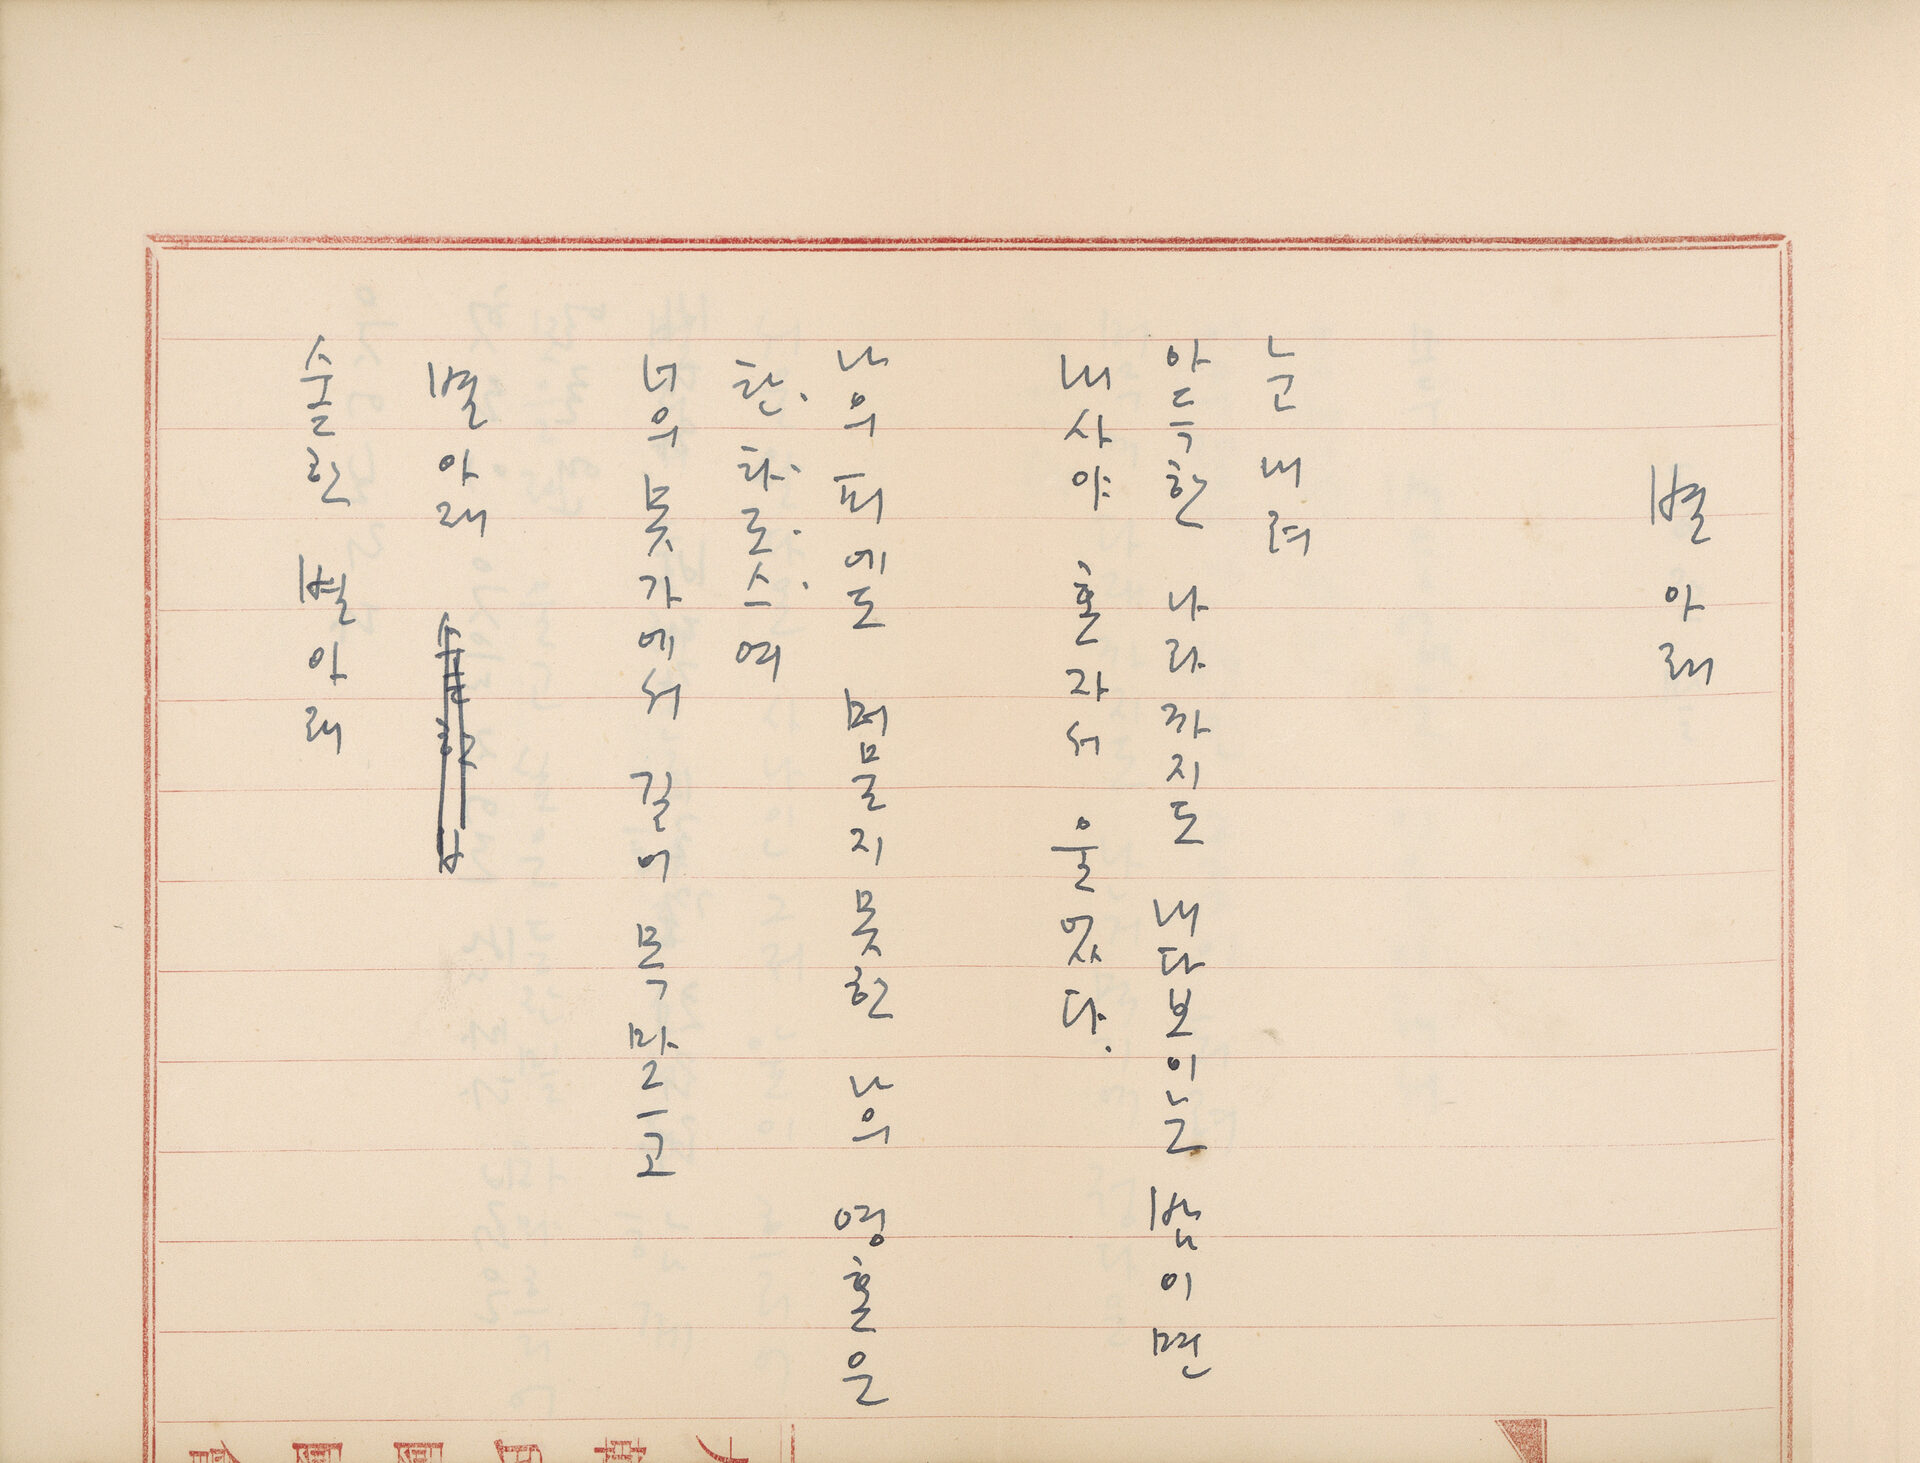 별 아래
눈 내려
아득한 나라까지도 내다보이는 밤이면
내사야 혼자서 울었다.
나의 피에도 머물지못한 나의 영혼은
탄타로스여
너의 못가에서 길이 목 말르고
별 아래
숱한 별아래